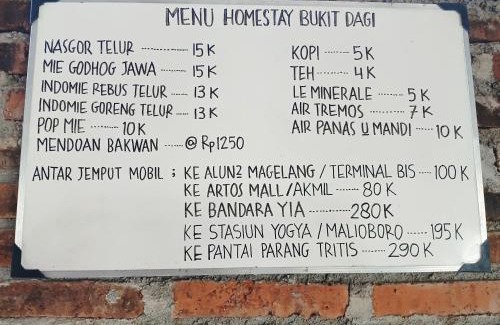 MENU HOMESTAY BUKIT DAGI
NASGOR TELUR ------------ 15 K
MIE GODHOG JAWA -------- 15 K
INDOMIE REBUS TELUR ------ 13 K
INDOMIE GORENG TELUR ----- 13 K
POP MIE -------- 10 K
MENDOAN BAKWAN ------ @ Rp1250
KOPI ------ 5 K
TEH ------ 4 K
LE MINERALE ------ 5 K
AIR TREMOS ------- 7 K
AIR PANAS U MANDI ---- 10 K
ANTAR JEMPUT MOBIL ; KE ALUN2 MAGELANG / TERMINAL BIS ---- 100 K
KE ARTOS MALL / AKMIL ------- 80 K
KE BANDARA YIA ------------ 280 K
KE STASIUN YOGYA / MALIOBORO ------- 195 K
KE PANTAI PARANG TRITIS ------- 290 K